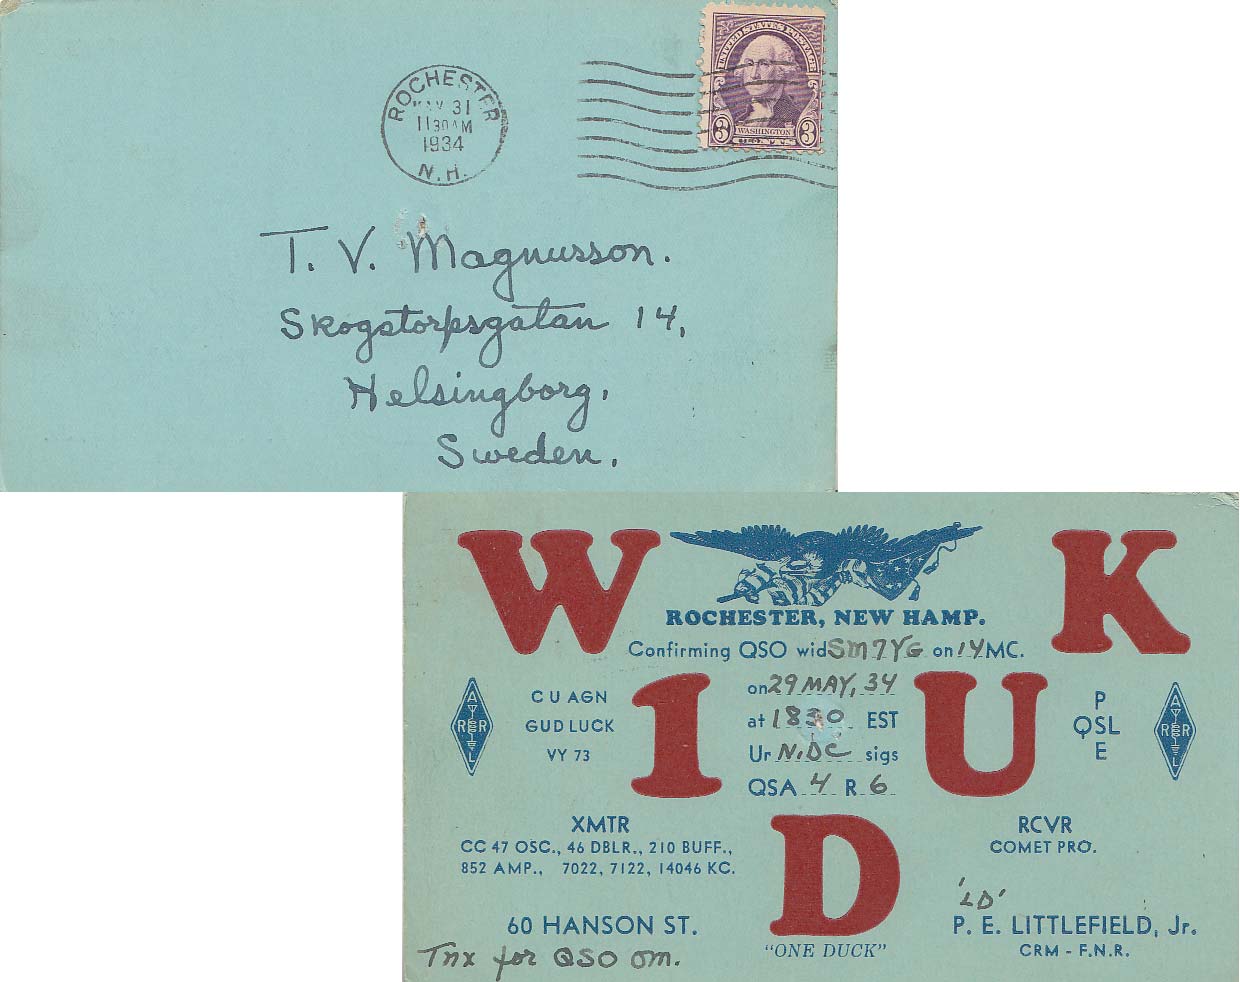 ROCHESTER
MAY 31
1130AM
1934
N.H.
UNITED STATES POSTAGE
3 WASHINGTON 3
T. V. Magnusson.
Skogstorpsgatan 14,
Helsingborg,
Sweden.
W K
ROCHESTER, NEW HAMP.
Confirming QSO wid SM7YG on 14 MC.
1 U
on 29 MAY, 34
at 1830 EST
Ur N.DC sigs
QSA 4 R 6
ARRL
C U AGN
GUD LUCK
VY 73
P
QSL
E
ARRL
XMTR
CC 47 OSC., 46 DBLR., 210 BUFF.,
852 AMP., 7022, 7122, 14046 KC.
D
RCVR
COMET PRO.
60 HANSON ST.
"ONE DUCK"
'LD'
P. E. LITTLEFIELD, Jr.
CRM - F.N.R.
Tnx for QSO om.